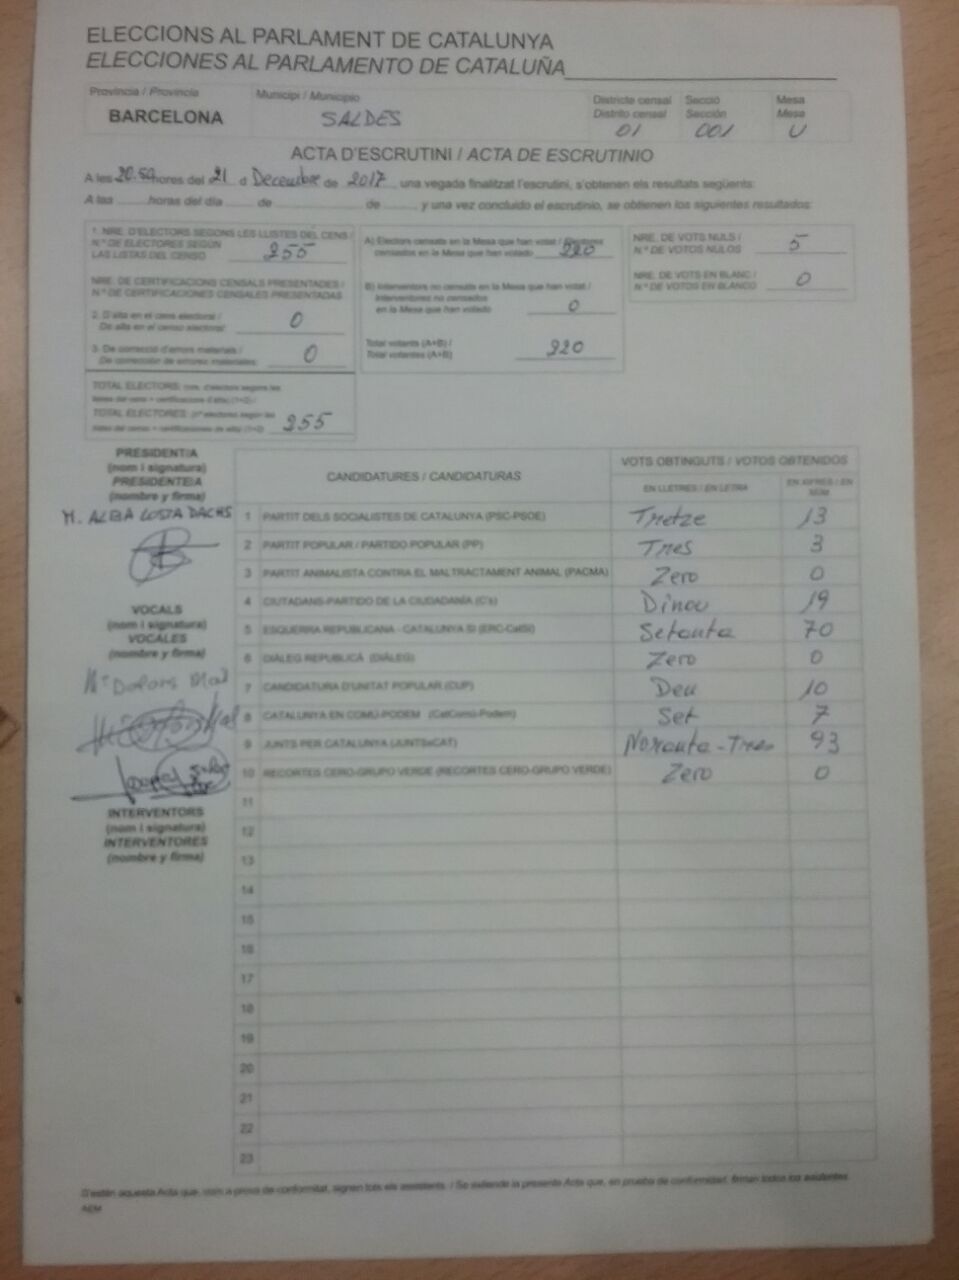 ELECCIONS AL PARLAMENT DE CATALUNYA
ELECCIONES AL PARLAMENTO DE CATALUÑA
Província / Provincia
BARCELONA
Municipi / Municipio
SALDES
Districte censal
Distrito censal
01
Secció
Sección
001
Mesa
Mesa
U
ACTA D'ESCRUTINI / ACTA DE ESCRUTINIO
A les 20.50 hores del 21 d Decembre de 2017, una vegada finalitzat l'escrutini, s'obtenen els resultats següents:
A las horas del día de de y una vez concluido el escrutinio, se obtienen los siguientes resultados:
1. NRE. D'ELECTORS SEGONS LES LLISTES DEL CENS /
N.º DE ELECTORES SEGÚN
LAS LISTAS DEL CENSO
255
NRE. DE CERTIFICACIONS CENSALS PRESENTADES /
N.º DE CERTIFICACIONES CENSALES PRESENTADAS
2. D'alta en el cens electoral /
De alta en el censo electoral:
0
3. De correcció d'errors materials /
De corrección de errores materiales:
0
TOTAL ELECTORS: nre. d'electors segons les
llistes del cens + certificacions d'alta (1+2) /
TOTAL ELECTORES: (nº electores según las
listas del censo + certificaciones de alta) (1+2)
255
A) Electors censats en la Mesa que han votat / Electores
censados en la Mesa que han votado
220
B) Interventors no censats en la Mesa que han votat /
Interventores no censados
en la Mesa que han votado
0
Total votants (A+B) /
Total votantes (A+B)
220
NRE. DE VOTS NULS /
N.º DE VOTOS NULOS
5
NRE. DE VOTS EN BLANC /
N.º DE VOTOS EN BLANCO
0
PRESIDENT/A
(nom i signatura)
PRESIDENTE/A
(nombre y firma)
M. ALBA COSTA DACHS
VOCALS
(nom i signatura)
VOCALES
(nombre y firma)
Mª Dolors
INTERVENTORS
(nom i signatura)
INTERVENTORES
(nombre y firma)
CANDIDATURES / CANDIDATURAS
VOTS OBTINGUTS / VOTOS OBTENIDOS
EN LLETRES / EN LETRA
EN XIFRES / EN NÚM
1 PARTIT DELS SOCIALISTES DE CATALUNYA (PSC-PSOE) Tretze 13
2 PARTIT POPULAR / PARTIDO POPULAR (PP) Tres 3
3 PARTIT ANIMALISTA CONTRA EL MALTRACTAMENT ANIMAL (PACMA) Zero 0
4 CIUTADANS-PARTIDO DE LA CIUDADANÍA (C's) Dinou 19
5 ESQUERRA REPUBLICANA - CATALUNYA SÍ (ERC-CatSí) Setanta 70
6 DIÀLEG REPUBLICÀ (DIÀLEG) Zero 0
7 CANDIDATURA D'UNITAT POPULAR (CUP) Deu 10
8 CATALUNYA EN COMÚ-PODEM (CatComú-Podem) Set 7
9 JUNTS PER CATALUNYA (JUNTSxCAT) Noranta-Tres 93
10 RECORTES CERO-GRUPO VERDE (RECORTES CERO-GRUPO VERDE) Zero 0
11
12
13
14
15
16
17
18
19
20
21
22
23
S'estén aquesta Acta que, com a prova de conformitat, signen tots els assistents. / Se extiende la presente Acta que, en prueba de conformidad, firman todos los asistentes.
AEM